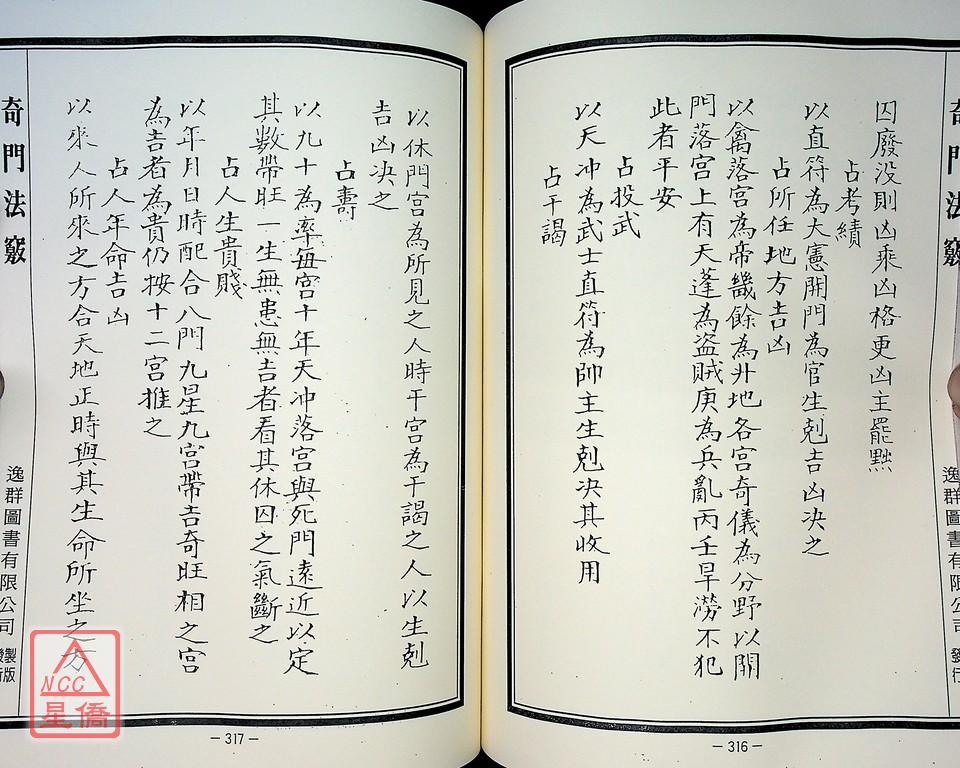 奇門法竅
囚廢没則凶乘凶格更凶主罷黜
占考績
以直符為大憲開門為官生剋吉凶决之
占所任地方吉凶
以禽落宮為帝畿餘為外地各宮奇儀為分野以開
門落宮上有天蓬為盜賊庚為兵亂丙壬旱澇不犯
此者平安
占投武
以天冲為武士直符為帥主生剋决其收用
占干謁
逸群圖書有限公司 發行
—316—
以休門宮為所見之人時干宮為干謁之人以生剋
吉凶决之
占壽
以九十為率每宮十年天冲落宮與死門遠近以定
其數帶旺一生無患無吉者看其休囚之氣斷之
占人生貴賤
以年月日時配合八門九星九宮帶吉奇旺相之宮
為吉者為貴仍按十二宮推之
占人年命吉凶
以來人所來之方合天地正時與其生命所坐之方
奇門法竅
逸群圖書有限公司 製版
發行
—317—
NCC
星僑